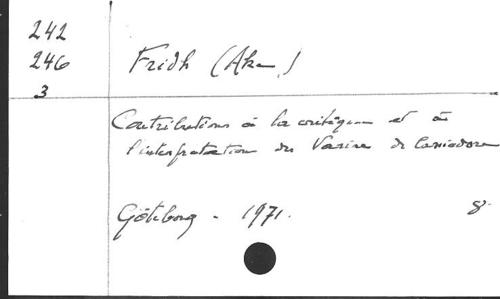 242
246 Fridh (Åke)
3
Contributions à la critique et à
l'interprétation des Variae de Cassiodore
Göteborg - 1971. 8°